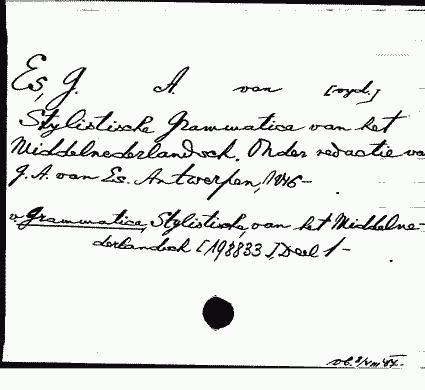 Es, G. A. van [syd.]
Stylistische Grammatica van het
Middelnederlandsch. Onder redactie va
G. A. van Es. Antwerpen, 1946-
v. Grammatica, Stylistische, van het Middelne-
derlandsch [198833], Deel 1-